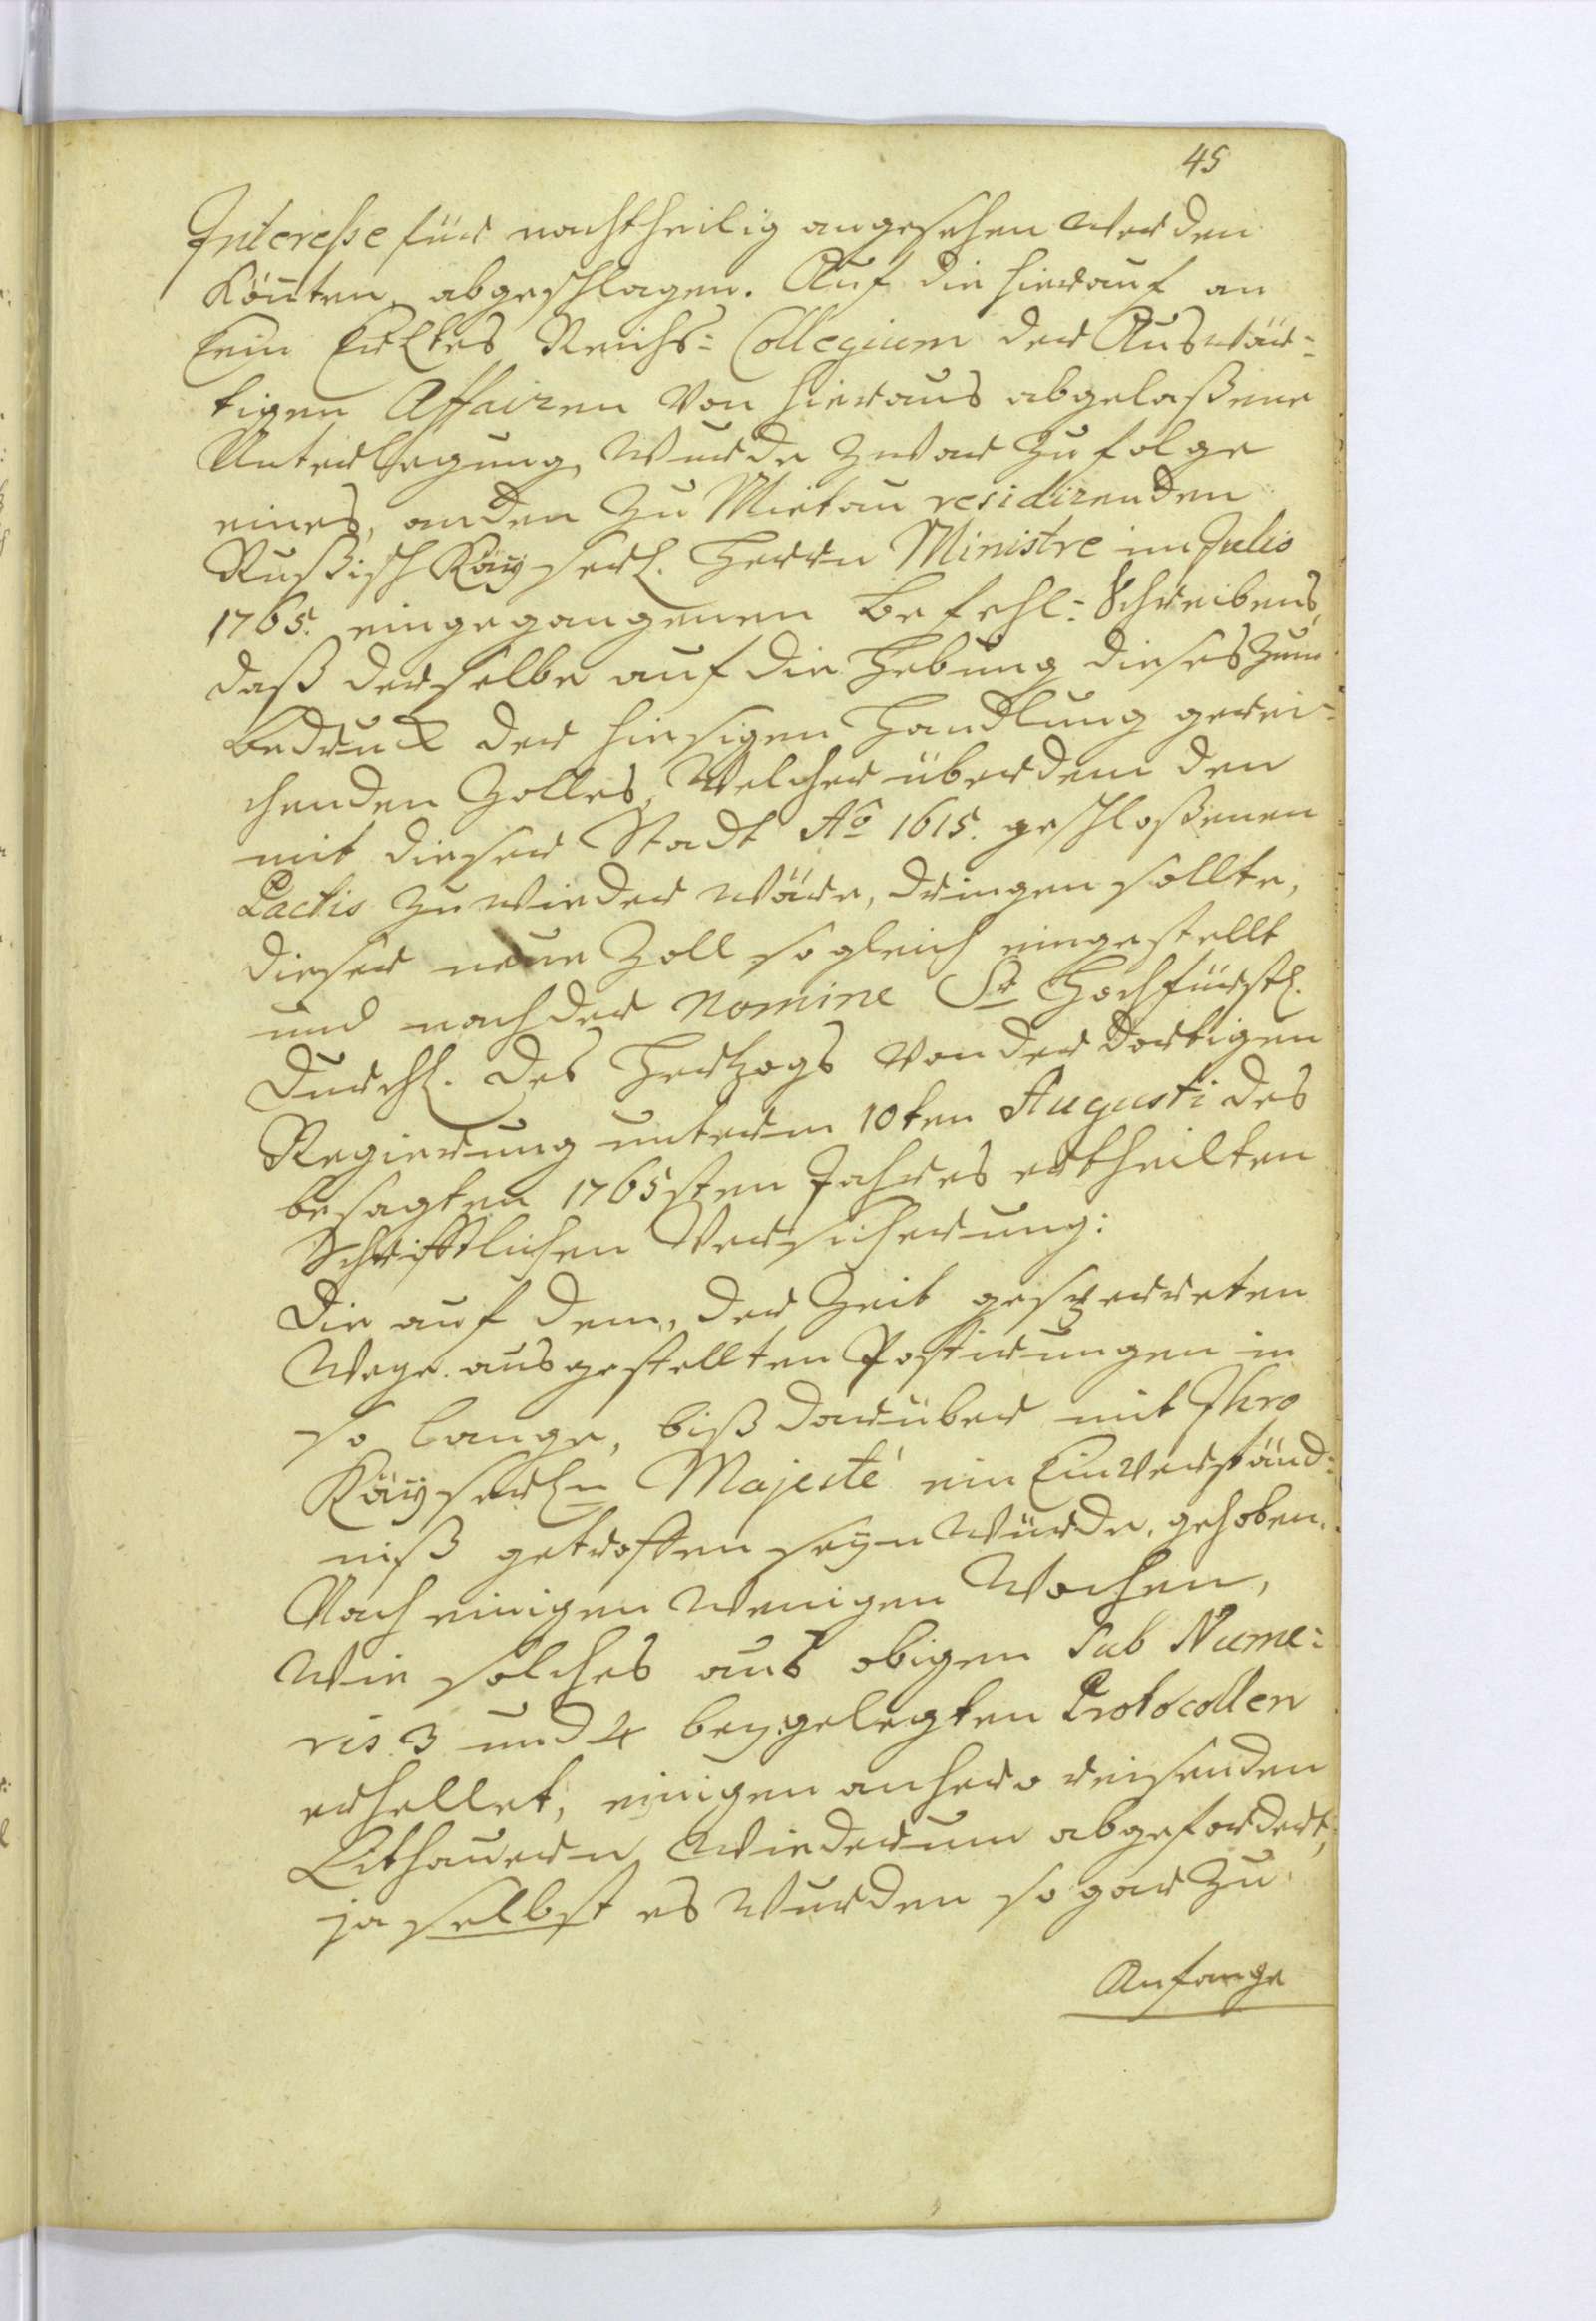 45
Interesse für nachtheilig angesehen werden
könten, abgeschlagen. Auf die hierauf an
Ein Erltes Reichs- Collegium der Auswär-
tigen Affairen von hieraus abgelaßene
Unterlegung, wurde zwar zufolge
eines, an den zu Mietau residirenden
Rußisch Kayserl. Herrn Ministre im Julio
1765. eingegangenen Befehl- Schreibens,
daß derselbe auf die Hebung dieses zum
Bedruck der hiesigen Handlung gerei-
chenden Zolles, welcher überdem den
mit dieser Stadt Ao 1615. geschloßenen
Pactis zuwieder wäre, dringen sollte,
dieser neue Zoll sogleich eingestellt
und nach der Nomine Sr Hochfürstl.
Durchl. des Hertzogs von der dortigen
Regierung unterm 10ten Augusti des
besagten 1765sten Jahres ertheilten
Schrifftlichen Versicherung:
die auf dem, der Zeit gesperreten
Wege ausgestellten Postirungen in
so lange, biß darüber mit Ihro
Kayserln Majesté ein Einverständ-
niß getroffen seyn würde, gehoben.
Nach einigen wenigen Wochen,
wie solches aus obigen sub Nume-
ris 3 und 4 beygelegten Protocollen
erhellet, einigen anhero reisenden
Lithauern wiederum abgefordert,
ja selbst es wurden so gar zu
Anfange